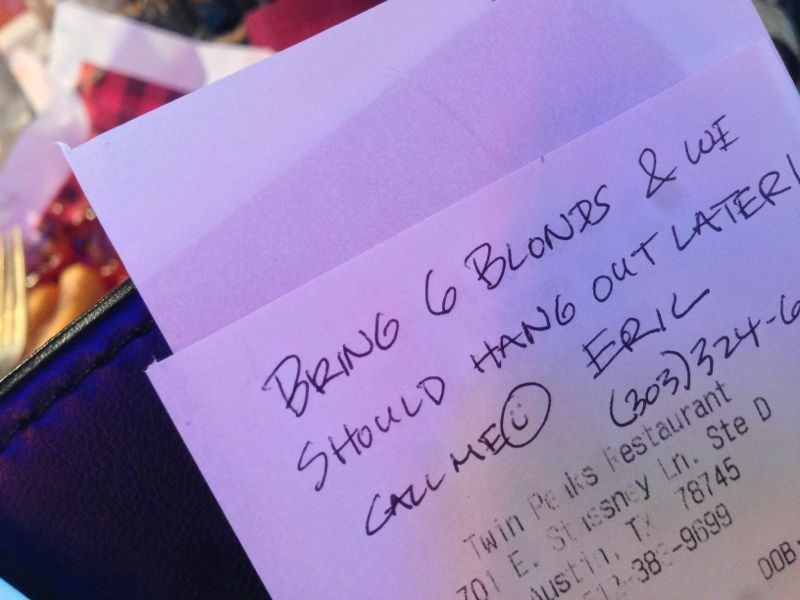 BRING 6 BLONDS & WE
SHOULD HANG OUT LATER!
CALL ME ERIC
(303)324-6
Twin Peaks Restaurant
701 E. Stassney Ln. Ste D
Austin, TX 78745
512-38 -9699
DOB: